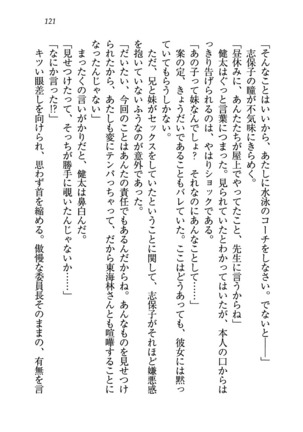 121
「そんなことはいいから、あたしに水泳のコーチをしなさい。でないと――」
志保子の瞳が不気味にきらめく。
「昼休みに、あんたたちが屋上でやってたこと、先生に言うからね」
健太はぐっと言葉につまった。覗かれていたとわかってはいたが、本人の口からは
っきり告げられるのは、やはりショックである。
「あの子って妹なんでしょ？　それなのにあんなことして……」
案の定、きょうだいであることもバレていた。ここはどうあっても、彼女には黙っ
ていてもらうしかない。
ただ、兄と妹がセックスをしていたということに関して、志保子がそれほど嫌悪感
を抱いていないふうなのが意外であった。
「だいたい、今回のことはあんたの責任でもあるんだからね。あんなものを見せつけ
てくれちゃって、あたしも変にテンパっちゃって、だから東海林さんとも喧嘩するこ
とになったんじゃない」
まったくの言いがかりだと、健太は鼻白んだ。
「見せつけたって、そっちが勝手に覗いたんじゃないか……」
「なにか言った!?」
キツい眼差しを向けられ、思わず首を縮める。傲慢な委員長そのままの、有無を言